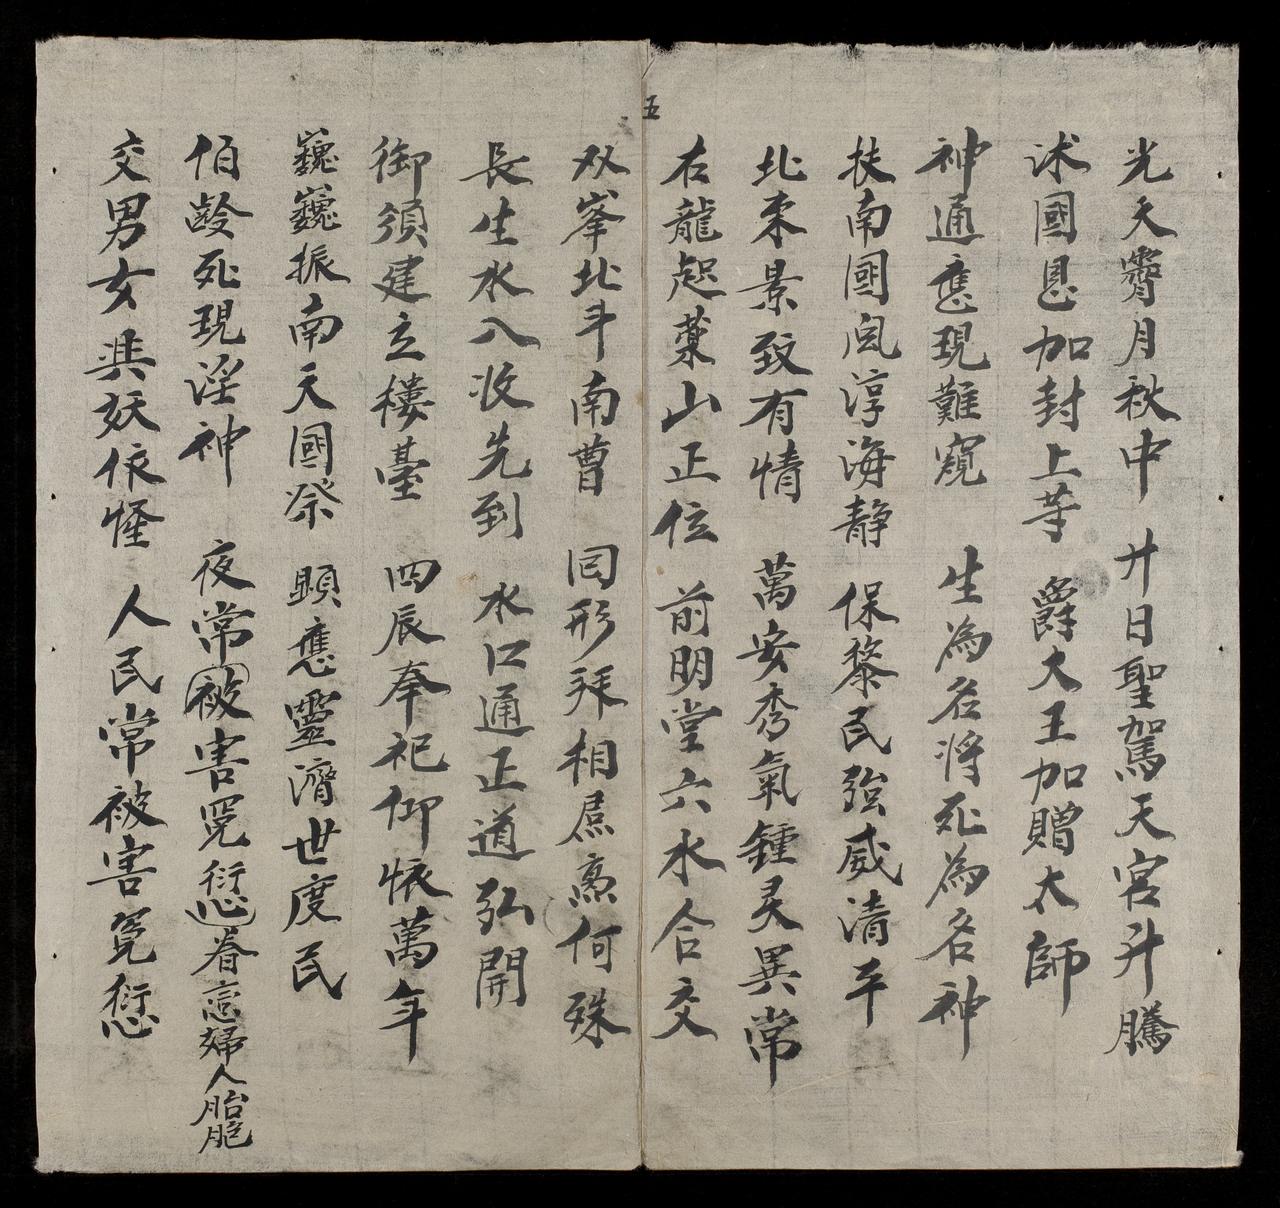 五
光天霽月秋中 廾日聖駕天宮升騰
沭國恩加封上等 爵大王加贈太師
神通應現難窺 生為名將死為名神
扶南國風淳海静 保黎民強威清平
北來景致有情 萬安秀氣鍾灵異常
右龍起藁山正位 前明堂六水合交
双峯北斗南曹 囘形拜相 何殊
長生水入收先到 水口通正道弘開
御須建立樓臺 四辰奉祀仰依萬年
巍巍振南天國祭 顕應靈濟世度民
伯齡死現淫神 夜常被害冤愆眷恋婦人胎胞
交男女興妖依怪 人民常被害冤愆